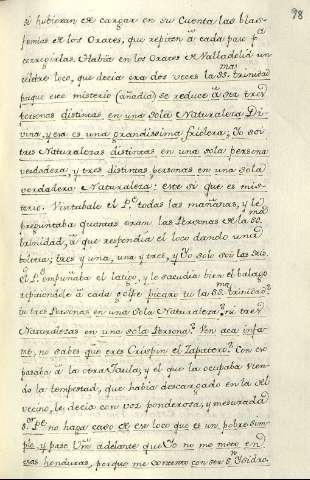 98
si hubieran de cargar en su Cuenta las blas-
femias de los Orates, que repiten à cada paso pa
corregirlas. Havia en los Orates de Valladolid un
celebre loco, que decia era dos veces la SS.ma trinidad
paque ese misterio (añadia) se reduce à ser tres
personas distintas en una sola Naturaleza Di-
vina, y eso es una grandissima friolera; Yo soi
tres Naturalezas distintas en una sola persona
verdadera, y tres distintas personas en una sola
verdadera Naturaleza: este si que es mis-
terio. Visitabale el P.e todas las mañanas, y le
preguntaba quantas eran las Personas de la SS.ma
trinidad, à que respondia el loco dando una
; tres y una, una y tres, y Yo solo soi las seis
el P.e empuñaba el latigo, y le sacudia bien el balago
repitiendole à cada golpe picaro tu la SS.ma trinidad?
tu tres Personas en una sola Naturaleza? ni tres
Naturalezas en una sola Persona? Ven aca infa-
me, no sabes que eres Crispin el Zapatero? Con eso
pasaba à la otra Jaula; y el que la ocupaba vien-
do la tempestad, que habia descargado en la del
vecino, le decia con voz ponderosa, y mesurada
S.or P.e no haga caso de ese loco que es un pobre sim-
ple, y pase Vm adelante que Yo no me meto en
esas honduras, porque me contento con ser S.n Isidro.